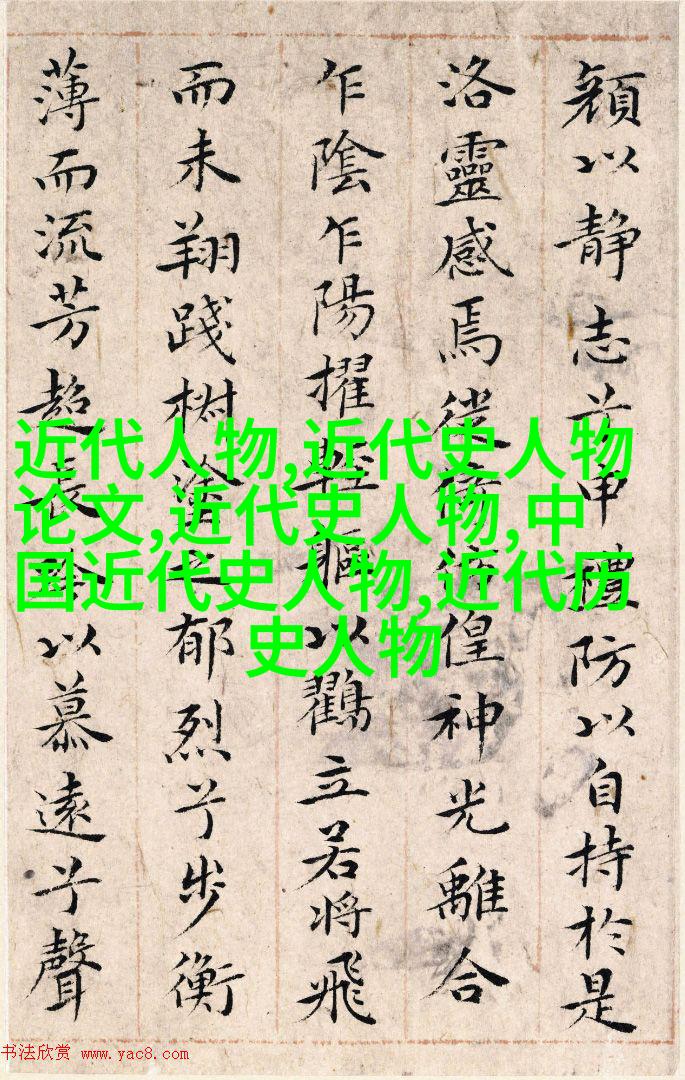 顏以静志兮申禮防以自持於是
洛靈感焉徙倚彷偟神光離合
乍陰乍陽擢輕軀以鸖立若將飛
而未翔踐椒塗之郁烈兮步衡
薄而流芳超長吟以慕遠兮聲
近代人物,近代史人物
论文,近代史人物,中
国近代史人物,近代历
史人物
书法欣赏 www.yac8.com